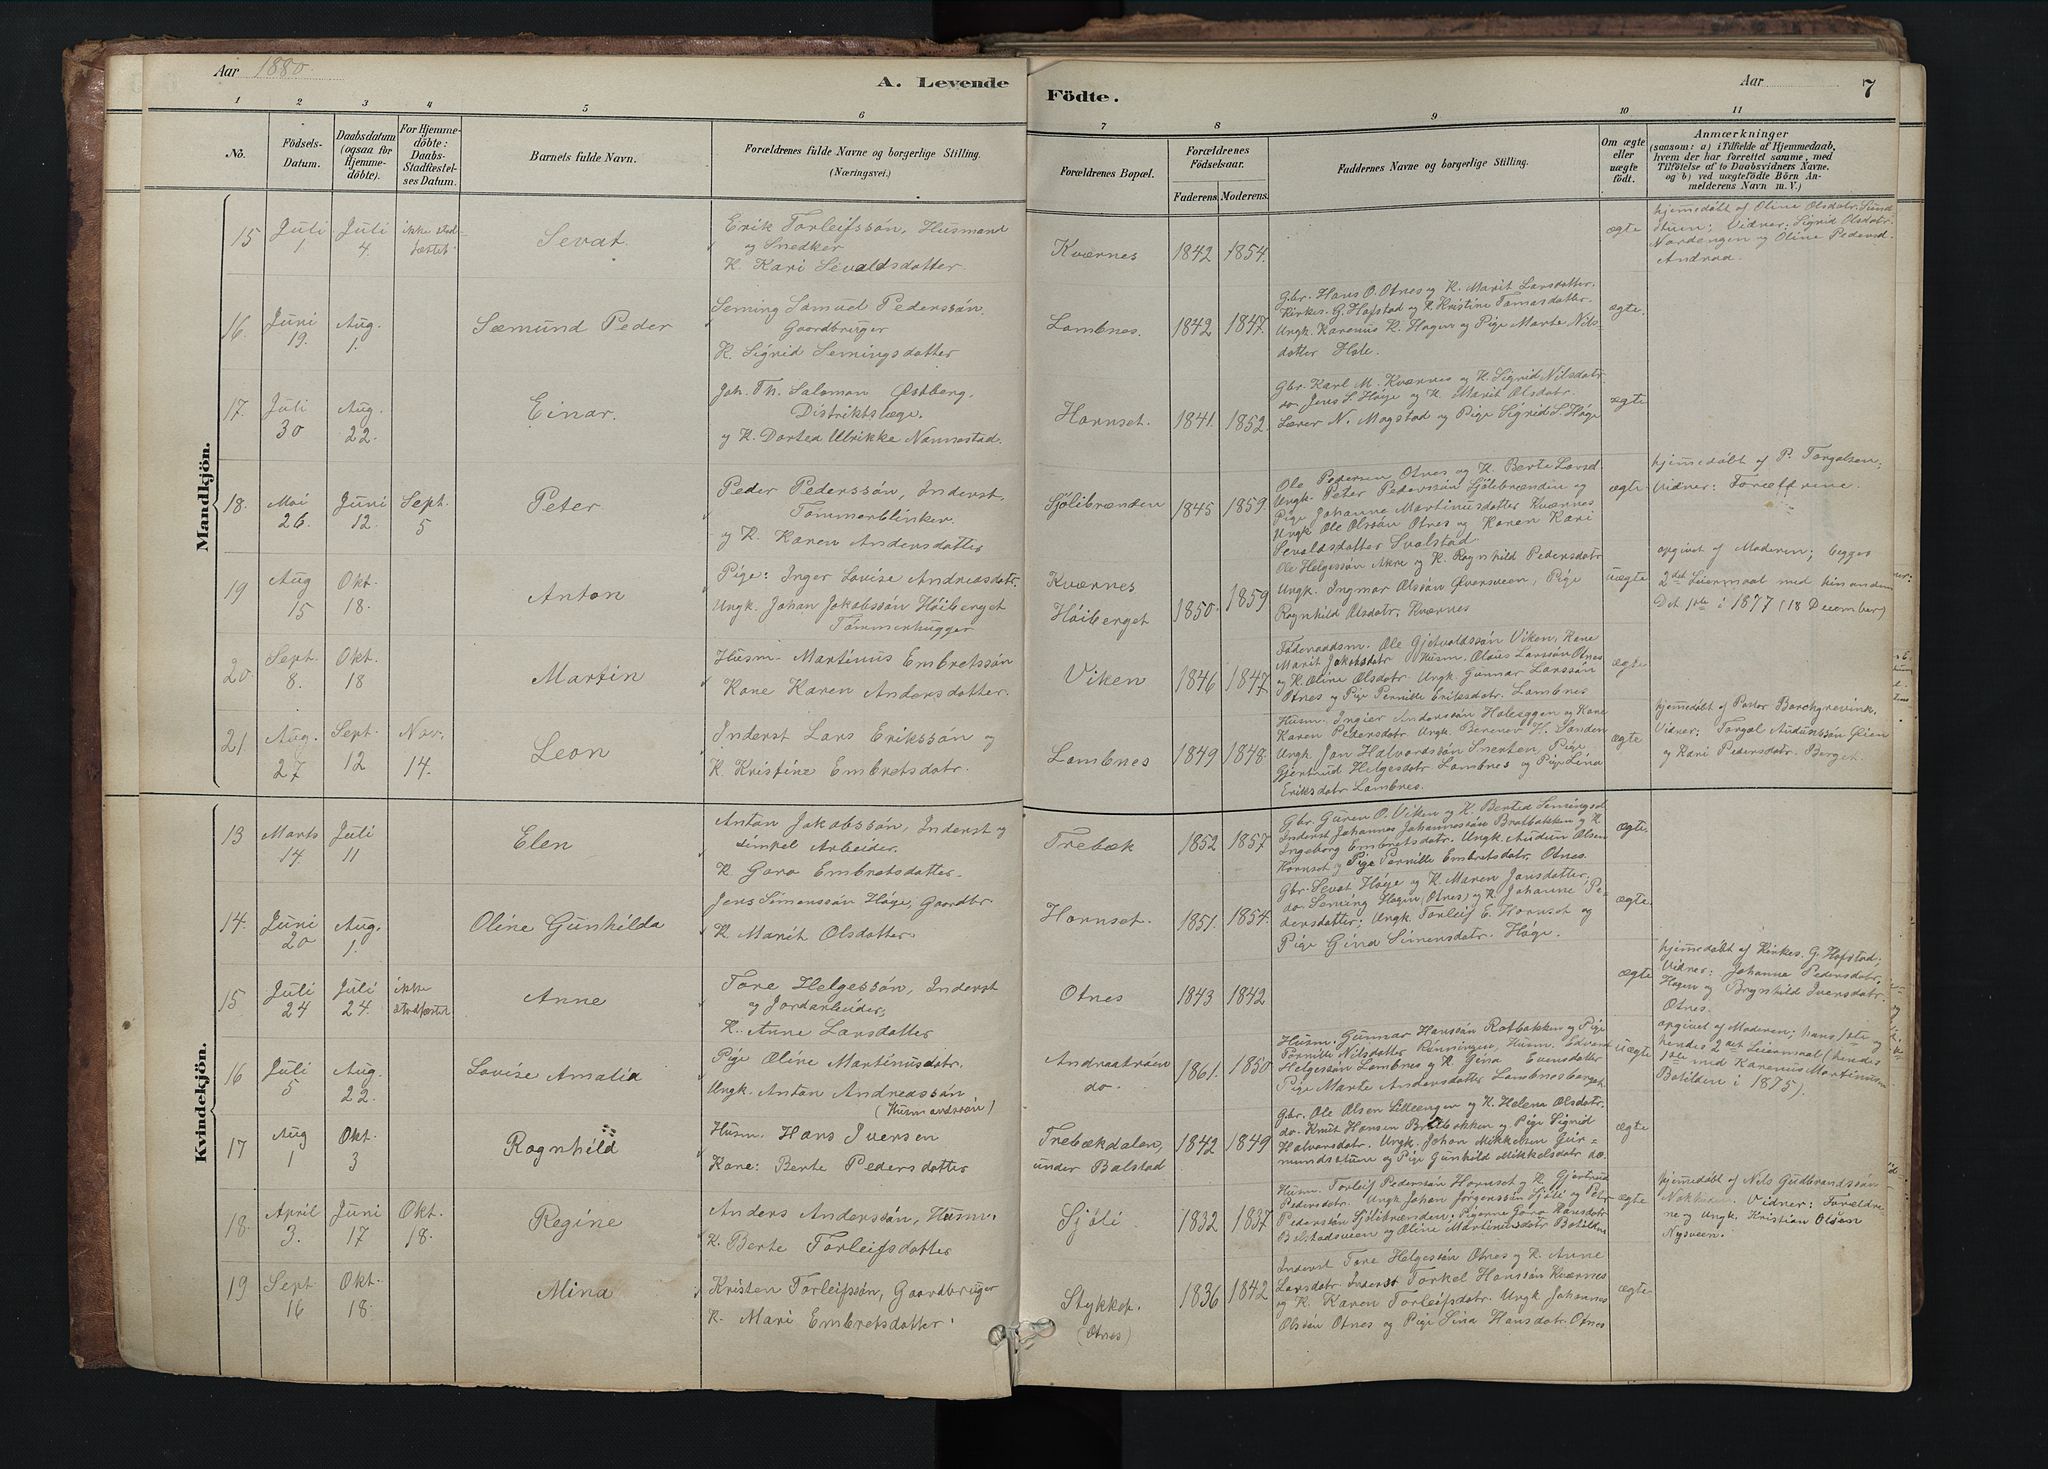 Aar 1880.
A. Levende
Födte.
Aar
7
1 2 3 4 5 6 7 8 9 10 11
No.
Födsels-Datum.
Daabsdatum (ogsaa for Hjemme-döbte).
For Hjemme-döbte: Daabs-Stadfæstel-ses Datum.
Barnets fulde Navn.
Forældrenes fulde Navne og borgerlige Stilling. (Næringsvei.)
Forældrenes Bopæl.
Forældrenes Födselsaar.
Faderens. Moderens.
Faddernes Navne og borgerlige Stilling.
Om ægte eller uægte födt.
Anmærkninger
(saasom: a) i Tilfælde af Hjemmedaab, hvem der har forrettet samme, med Tilföielse af to Daabsvidners Navne, og b) ved uægtefödte Börn An-melderens Navn m. V.)
Mandkjön.
15 Juli 1 Juli 4. ikke stad-fæstet
Sevat.
Erik Torleifssön, Husmand
og Snedker
K. Kari Sevaldsdatter.
Kværnes 1842 1854.
ægte
hjemmedöbt af Oline Olsdatr. Sund-
stuen; Vidner: Sigrid Olsdatr
Nordengen og Oline Pedersd.
Andraa.
16. Juni 19. Aug. 1.
Sæmund Peder
Seming Samuel Pederssön,
Gaardbruger
K. Sigrid Semingsdatter
Lombnes. 1842 1847.
Gbr. Hans O. Otnes og K. Marit Larsdatter.
Kirkes. G. Hafstad og K. Kristine Tomasdatter.
Ungk. Karenus K. Hagen og Pige Marte Nils-
datter Hole.
ægte.
17. Juli 30 Aug. 22.
Einar.
Joh. Th. Salomon Østberg,
Distriktslæge.
og K. Dortea Ulrikke Nannestad.
Hornset. 1841. 1852.
Gbr. Karl M. Kværnes og K. Sigrid Nilsdatr.
do. Jens S. Høye og K. Marit Olsdatr.
Lærer N. Magstad og Pige Sigrid S. Høye
ægte
18. Mai 26. Juni 12. Sept. 5
Peter.
Peder Pederssön, Inderst.
Tömmerblinker.
og K. Karen Andersdatter
Sjölibrænden 1845 1859.
Ole Pedersen Otnes og K. Berte Larsd.
Ungk. Peter Pederssön Sjölibrænden og
Pige Johanne Martinusdatter Kværnes
Ungk. Ole Olssön Otnes og Karen Kari
Sevaldsdatter Svalstad.
ægte
hjemmedöbt af P. Torgalsen;
Vidner: Forældrene.
19 Aug 15 Okt. 18.
Anton
Pige: Inger Lovise Andreasdatr.
Ungk. Johan Jakobssön Höiberget
Tömmerhugger
Kværnes
Höiberget 1850. 1859
Ole Helgessön Akre og K. Ragnhild Pedersdatr.
Ungk. Ingmar Olssön Øversveen, Pige
Ragnhild Olsdatr. Kværnes
uægte
opgivet af Moderen; begges
2det Leiermaal med hinanden.
Det 1ste i 1877 (18 December)
20. Sept. 8. Okt. 18
Martin
Husm. Martinus Embretssön
Kone Karen Andersdatter.
Viken 1846 1847.
Föderaadsm. Ole Gjetvaldssön Viken, Kone
Marit Jakobsdatr. Husm. Olaus Larssön Otnes
og K. Oline Olsdatr. Ungk. Gunnar Larssön
Otnes og Pige Pernille Eriksdatr. Lombnes
ægte
21 Aug. 27 Sept. 12 Nov. 14.
Leon
Inderst Lars Erikssön og
K. Kristine Embretsdatr.
Lombnes 1849 1848.
Husm. Ingier Anderssön Haleggen og Kone
Karen Pedersdatr. Ungk. Berener H. Sanden
Ungk. Jon Halvorssön Snerten, Pige
Gjertrud Helgesdatr. Lombnes og Pige Lina
Eriksdatr. Lombnes.
ægte
hjemmedöbt af Pastor Borchgrevink.
Vidner: Torgal Audunssön Øien
og Kari Pedersdatr. Berget.
Kvindekjön.
13 Marts 14. Juli 11
Elen
Anton Jakobssön, Inderst og
simpel Arbeider.
K. Goro Embretsdatter.
Trebæk 1852 1857
Gbr. Guren O. Viken og K. Bertea Semingsd.
Inderst Johannes Johannessön Bratbakken og K.
Ingeborg Embretsdatr. Ungk. Audun Olsen
Hornset og Pige Pernille Embretsdatr. Otnes.
ægte.
14. Juni 20 Aug. 1.
Oline Gunhilda
Jens Simenssön Høye, Gaardbr.
K. Marit Olsdatter.
Hornset. 1851. 1854.
Gbr. Sevat Høye og K. Maren Jonsdatter,
do. Seming Hagen (Otnes) og K. Johanne Pe-
dersdatter; Ungk. Torleif E. Hornset og
Pige Gina Simensdatr. Høye.
ægte.
15 Juli 24 Juli 24. ikke stadfæstet
Anne
Tore Helgessön, Inderst
og Jordarbeider,
K. Anne Larsdatter
Otnes 1843 1842
ægte
hjemmedöbt af Kirkes. G. Hafstad;
Vidner: Johanna Pedersdatr.
Hagen og Brynhild Iversdatr.
Otnes.
16 Juli 5 Aug. 22.
Lovise Amalia
Pige Oline Martinusdatr.
Ungk. Anton Andreassön
(Husmandssön)
Andraaström
do. 1861. 1850
Husm. Gunnar Hanssön Rotbakken og Pige
Pernille Nilsdatter Rönningen, Husm. Edvard
Helgessön Lombnes og K. Gina Evensdatter
Pige Marte Andersdatter Lombnesberget
uægte
opgivet af Moderen; hans 1ste og
hendes 2det Leiermaal (hendes
1ste med Karenus Martinussen
Botilden i 1875).
17 Aug 1 Okt. 3
Ragnhild
Husm. Hans Iversen
Kone: Berte Pedersdatter
Trebækdalen,
under Bolstad 1842 1849
Gbr. Ole Olsen Lilleengen og K. Helena Olsdatr.
do. Knut Hansen Bratbakken og Pige Sigrid
Halvorsdatr. Ungk. Johan Mikkelsen Gur=
mundstuen og Pige Gunhild Mikkelsdatr. do.
ægte
18. April 3. Juni 17 Okt. 18.
Regine
Anders Anderssön, Husm.
K. Berte Torleifsdatter
Sjöli 1832 1837
Husm. Torleif Pederssön Hornset og K. Gjertrud
Pedersdatr. Ungk. Johan Jörgenssön Sjöli og Petr
Pederssön Sjölibrenden; Pigerne Goro Hansdatr.
Bolstadsveen og Oline Martinusdatr. Botilden
ægte
hjemmedöbt af Nils Gudbrandssön
Vidner: Forældre-
ne og Ungk. Kristian Olsön
Nysveen.
19 Sept. 16 Okt. 18.
Mina
Kristen Torleifssön, Gaardbruger
K. Mari Embretsdatter.
Stykket.
(Otnes) 1836 1842
Inderst Tore Helgessön Otnes og K. Anne
Larsdatr. Inderst Torkel Hanssön Kværnes
og K. Karen Torleifsdatr. Ungk. Johannes
Olssön Otnes og Pige Lina Hansdatr. Otnes
ægte